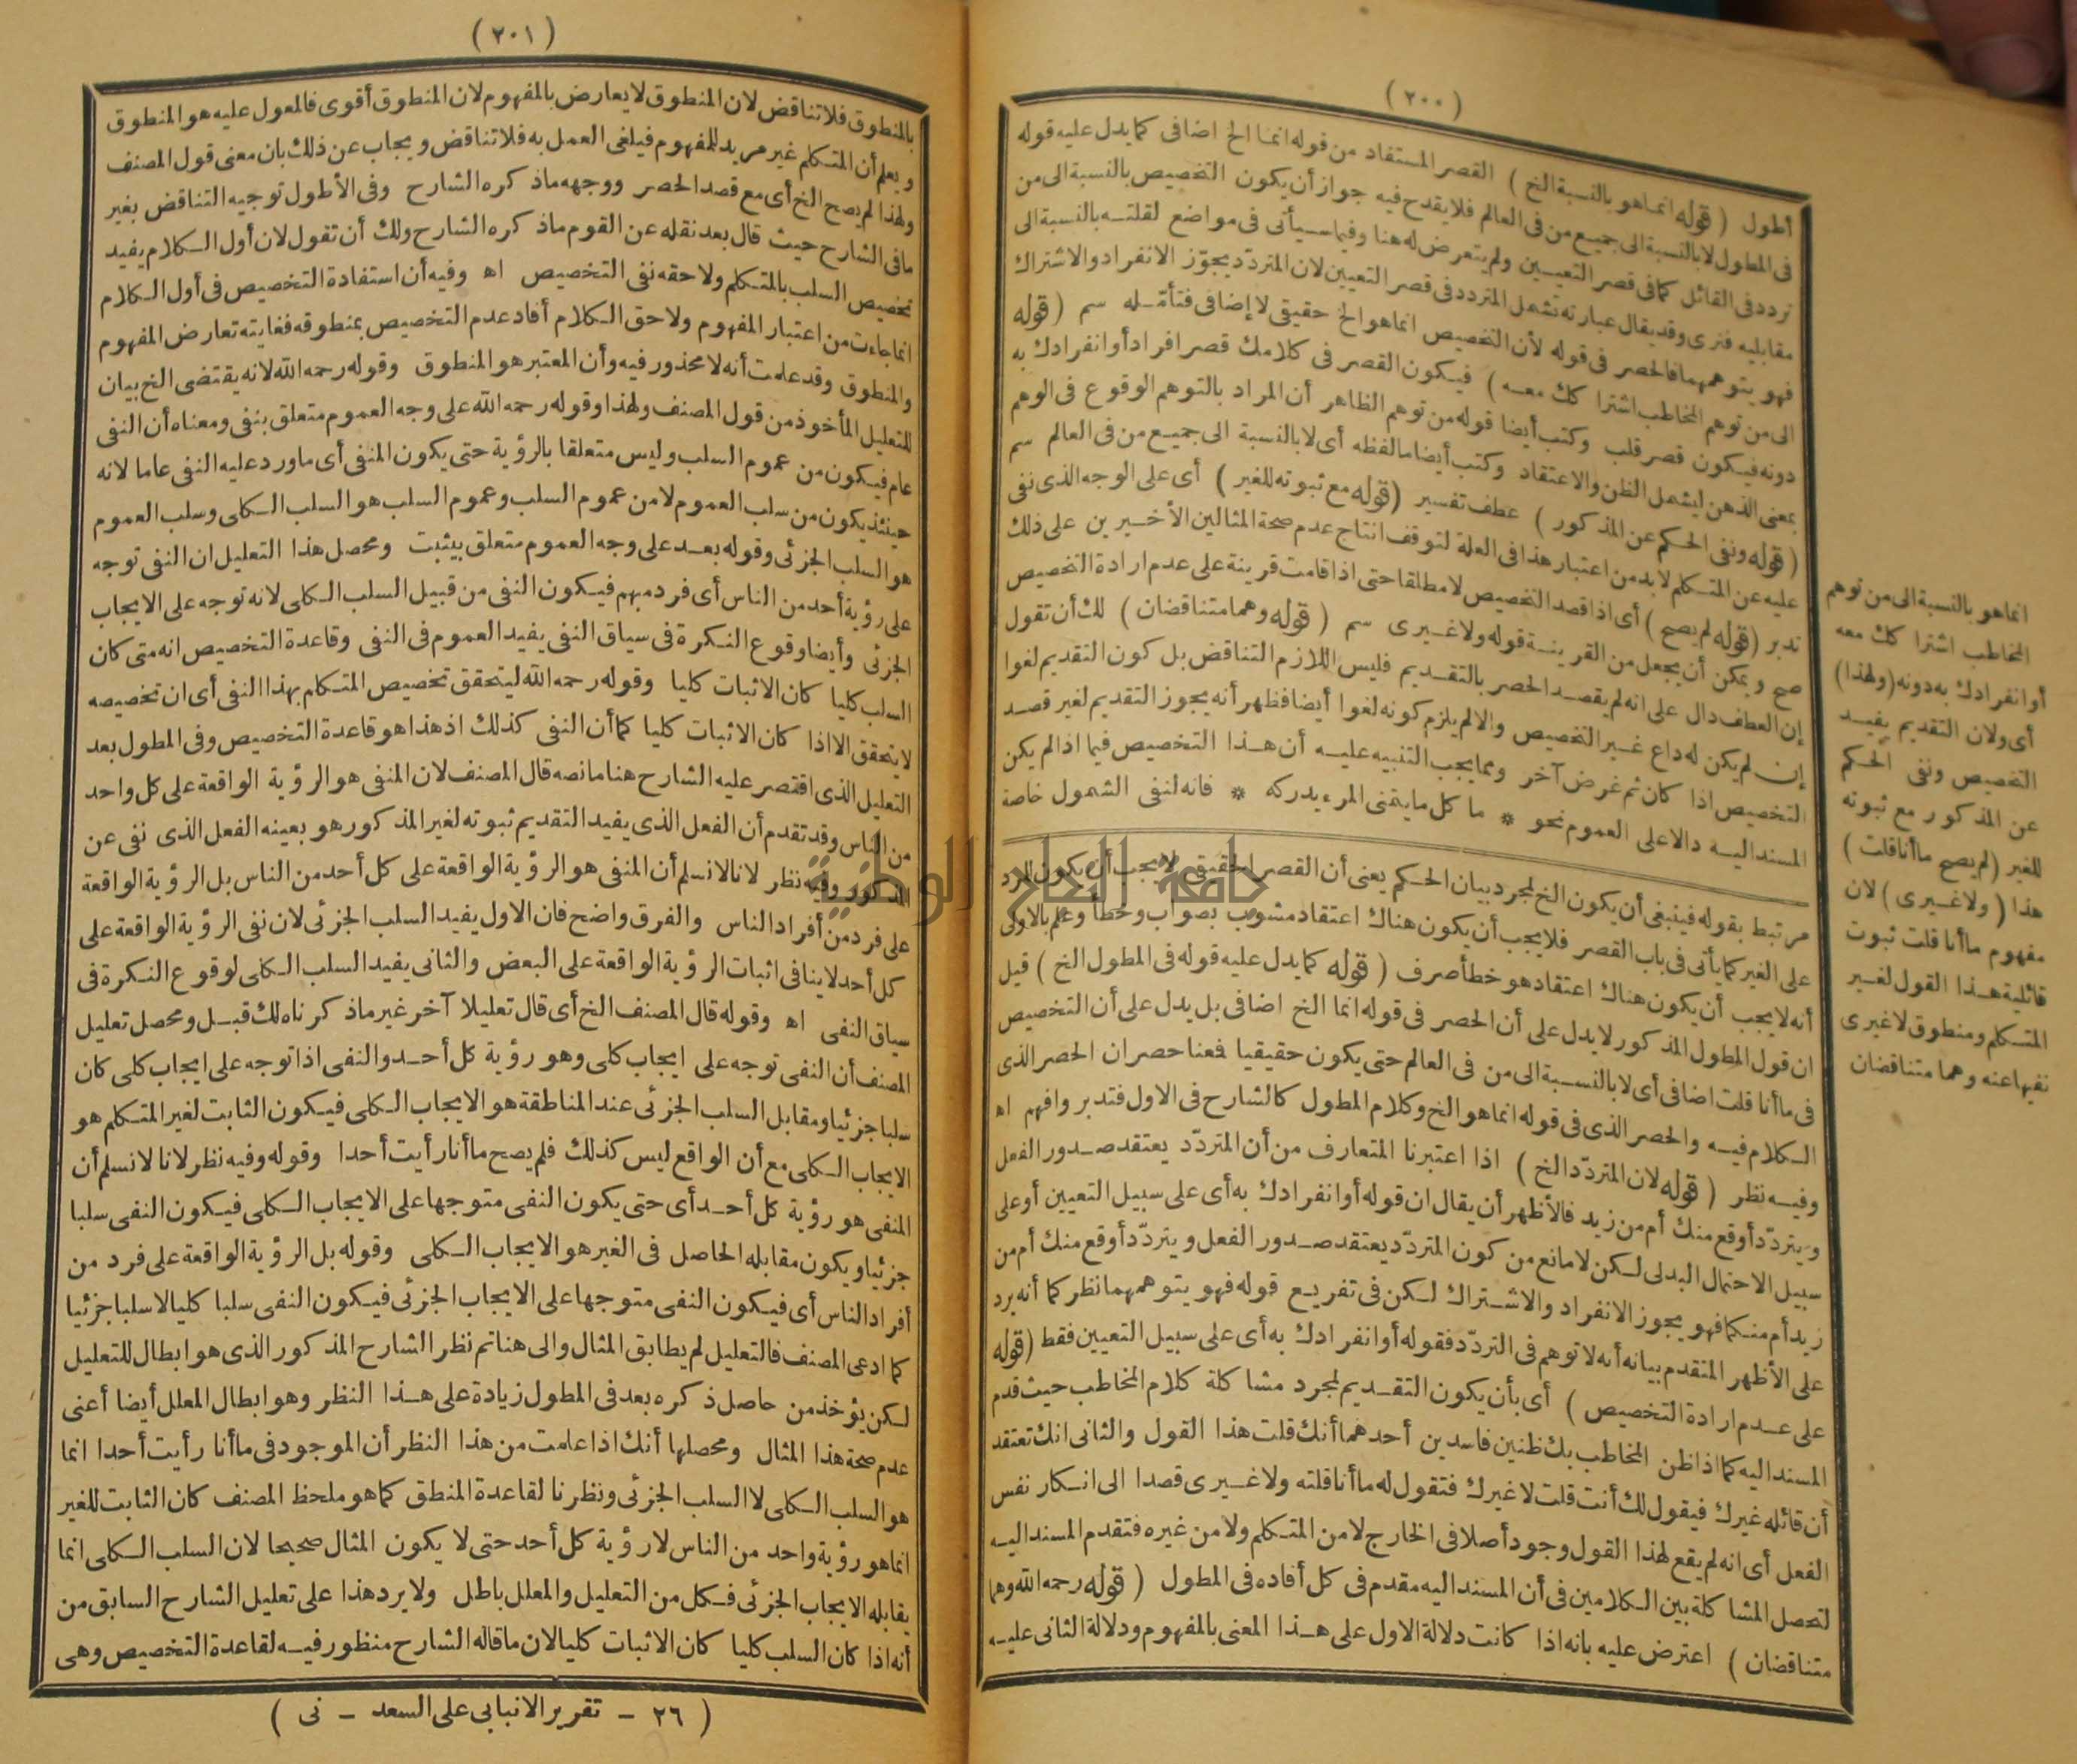 ( ٢٠٠ )
أطول ( قوله انماهو بالنسبة الخ ) القصر المستفاد من قوله انما الخ اضافى كما يدل عليه قوله
فى المطول لا بالنسبة الى جميع من فى العالم فلا يقدح فيه جواز أن يكون التخصيص بالنسبة الى من
تردد فى القائل كما فى قصر التعيين ولم يتعرض له هنا وفيما سيأتى فى مواضع لقلته بالنسبة الى
مقابليه فترى وقد يقال عبارته تشمل المتردد فى قصر التعيين لان المتردد يجوّز الانفراد والاشتراك
فهو يتوهمهما فالحصر فى قوله لأن التخصيص انما هو الخ حقيقى لا إضافى فتأمّله سم ( قوله
الى من توهم المخاطب اشتراكك معه ) فيكون القصر فى كلامك قصر افراد أو انفرادك به
دونه فيكون قصر قلب وكتب أيضا قوله من توهم الظاهر أن المراد بالتوهم الوقوع فى الوهم
بمعنى الذهن ليشمل الظن والاعتقاد وكتب أيضا مالفظه أى لا بالنسبة الى جميع من فى العالم سم
( قوله ونفى الحكم عن المذكور ) عطف تفسير ( قوله مع ثبوته للغير ) أى على الوجه الذى نفى
عليه عن المتكلم لابد من اعتبار هذا فى العلة لتوقف انتاج عدم صحة المثالين الأخيرين على ذلك
تدبر ( قوله لم يصح ) أى اذا قصد التخصيص لا مطلقا حتى اذا قامت قرينة على عدم ارادة التخصيص
صح ويمكن أن يجعل من القرينة قوله ولا غيرى سم ( قوله وهما متناقضان ) لك أن تقول
إن العطف دال على انه لم يقصد الحصر بالتقديم فليس اللازم التناقض بل كون التقديم لغوا
إن لم يكن له داع غير التخصيص والا لم يلزم كونه لغوا أيضا فظهر أنه يجوز التقديم لغير قصد
التخصيص اذا كان ثم غرض آخر ومما يجب التنبيه عليه أن هذا التخصيص فيما اذا لم يكن
المسند اليه دالا على العموم نحو * ما كل ما يتمنى المرء يدركه * فانه لنفى الشمول خاصة
انما هو بالنسبة الى من توهم
المخاطب اشتراكك معه
أو انفرادك به دونه (ولهذا)
أى ولان التقديم يفيد
التخصيص ونفى الحكم
عن المذكور مع ثبوته
للغير ( لم يصح ما أنا قلت )
هذا ( ولا غيرى ) لان
مفهوم ما أنا قلت ثبوت
قائلية هذا القول لغير
المتكلم ومنطوق لا غيرى
نفيها عنه وهما متناقضان
مرتبط بقوله فينبغى أن يكون الخ لمجرد بيان الحكم يعنى أن القصر الحقيقى لا يجب أن يكون للرد
على الغير كما يأتى فى باب القصر فلا يجب أن يكون هناك اعتقاد مشوب بصواب وخطأ وعلم بالاولى
أنه لا يجب أن يكون هناك اعتقاد هو خطأ صرف ( قوله كما يدل عليه قوله فى المطول الخ ) قيل
ان قول المطول المذكور لا يدل على أن الحصر فى قوله انما الخ اضافى بل يدل على أن التخصيص
فى ما أنا قلت اضافى أى لا بالنسبة الى من فى العالم حتى يكون حقيقيا فعنا حصران الحصر الذى
الكلام فيه والحصر الذى فى قوله انما هو الخ وكلام المطول كالشارح فى الاول فتدبر وافهم اه
وفيه نظر ( قوله لان المتردّد الخ ) اذا اعتبرنا المتعارف من أن المتردّد يعتقد صدور الفعل
ويتردّد أوقع منك أم من زيد فالأظهر أن يقال ان قوله أو انفرادك به أى على سبيل التعيين أو على
سبيل الاحتمال البدلى لكن لا مانع من كون المتردّد يعتقد صدور الفعل ويتردّد أوقع منك أم من
زيد أم منكما فهو يجوز الانفراد والاشتراك لكن فى تفريع قوله فهو يتوهمهما نظر كما أنه يرد
على الأظهر المتقدم بيانه أنه لا توهم فى التردّد فقوله أو انفرادك به أى على سبيل التعيين فقط ( قوله
على عدم ارادة التخصيص ) أى بأن يكون التقديم لمجرد مشاكلة كلام المخاطب حيث قدم
المسند اليه كما اذا ظن المخاطب بك ظنين فاسدين أحدهما أنك قلت هذا القول والثانى انك تعتقد
أن قائله غيرك فيقول لك أنت قلت لا غيرك فتقول له ما أنا قلته ولا غيرى قصدا الى انكار نفس
الفعل أى انه لم يقع لهذا القول وجود أصلا فى الخارج لا من المتكلم ولا من غيره فتقدم المسند اليه
لتحصل المشاكلة بين الكلامين فى أن المسند اليه مقدم فى كل أفاده فى المطول ( قوله رحمه الله وهما
متناقضان ) اعترض عليه بانه اذا كانت دلالة الاول على هذا المعنى بالمفهوم ودلالة الثانى عليه
( ٢٠١ )
بالمنطوق فلا تناقض لان المنطوق لا يعارض بالمفهوم لان المنطوق أقوى فالمعول عليه هو المنطوق
ويعلم أن المتكلم غير مريد للمفهوم فيلغى العمل به فلا تناقض ويجاب عن ذلك بان معنى قول المصنف
ولهذا لم يصح الخ أى مع قصد الحصر ووجهه ماذكره الشارح وفى الأطول توجيه التناقض بغير
مافى الشارح حيث قال بعد نقله عن القوم ماذكره الشارح ولك أن تقول لان أول الكلام يفيد
تخصيص السلب بالمتكلم ولاحقه نفى التخصيص اه وفيه أن استفادة التخصيص فى أول الكلام
انما جاءت من اعتبار المفهوم ولاحق الكلام أفاد عدم التخصيص بمنطوقه فغايته تعارض المفهوم
والمنطوق وقد علمت أنه لا محذور فيه وأن المعتبر هو المنطوق وقوله رحمه الله لانه يقتضى الخ بيان
للتعليل المأخوذ من قول المصنف ولهذا وقوله رحمه الله على وجه العموم متعلق بنفى ومعناه أن النفى
عام فيكون من عموم السلب وليس متعلقا بالرؤية حتى يكون المنفى أى ماورد عليه النفى عاما لانه
حينئذ يكون من سلب العموم لا من عموم السلب وعموم السلب هو السلب الكلى وسلب العموم
هو السلب الجزئى وقوله بعد على وجه العموم متعلق بيثبت ومحصل هذا التعليل ان النفى توجه
على رؤية أحد من الناس أى فرد مبهم فيكون النفى من قبيل السلب الكلى لانه توجه على الايجاب
الجزئى وأيضا وقوع النكرة فى سياق النفى يفيد العموم فى النفى وقاعدة التخصيص انه متى كان
السلب كليا كان الاثبات كليا وقوله رحمه الله ليتحقق تخصيص المتكلم بهذا النفى أى ان تخصيصه
لا يتحقق الا اذا كان الاثبات كليا كما أن النفى كذلك اذ هذا هو قاعدة التخصيص وفى المطول بعد
التعليل الذى اقتصر عليه الشارح هنا مانصه قال المصنف لان المنفى هو الرؤية الواقعة على كل واحد
من الناس وقد تقدم أن الفعل الذى يفيد التقديم ثبوته لغير المذكور هو بعينه الفعل الذى نفى عن
المذكور وفيه نظر لانا لا نسلم أن المنفى هو الرؤية الواقعة على كل أحد من الناس بل الرؤية الواقعة
على فرد من أفراد الناس والفرق واضح فان الاول يفيد السلب الجزئى لان نفى الرؤية الواقعة على
كل أحد لا ينافى اثبات الرؤية الواقعة على البعض والثانى يفيد السلب الكلى لوقوع النكرة فى
سياق النفى اه وقوله قال المصنف الخ أى قال تعليلا آخر غير ماذكرناه لك قبل ومحصل تعليل
المصنف أن النفى توجه على ايجاب كلى وهو رؤية كل أحد والنفى اذا توجه على ايجاب كلى كان
سلبا جزئيا ومقابل السلب الجزئى عند المناطقة هو الايجاب الكلى فيكون الثابت لغير المتكلم هو
الايجاب الكلى مع أن الواقع ليس كذلك فلم يصح ما أنا رأيت أحدا وقوله وفيه نظر لانا لا نسلم أن
المنفى هو رؤية كل أحد أى حتى يكون النفى متوجها على الايجاب الكلى فيكون النفى سلبا
جزئيا ويكون مقابله الحاصل فى الغير هو الايجاب الكلى وقوله بل الرؤية الواقعة على فرد من
أفراد الناس أى فيكون النفى متوجها على الايجاب الجزئى فيكون النفى سلبا كليا لا سلبا جزئيا
كما ادعى المصنف فالتعليل لم يطابق المثال والى هنا تم نظر الشارح المذكور الذى هو ابطال للتعليل
لكن يؤخذ من حاصل ذكره بعد فى المطول زيادة على هذا النظر وهو ابطال المعلل أيضا أعنى
عدم صحة هذا المثال ومحصلها أنك اذا علمت من هذا النظر أن الموجود فى ما أنا رأيت أحدا انما
هو السلب الكلى لا السلب الجزئى ونظرنا لقاعدة المنطق كما هو ملحظ المصنف كان الثابت للغير
انما هو رؤية واحد من الناس لا رؤية كل أحد حتى لا يكون المثال صحيحا لان السلب الكلى انما
يقابله الايجاب الجزئى فكل من التعليل والمعلل باطل ولا يرد هذا على تعليل الشارح السابق من
أنه اذا كان السلب كليا كان الاثبات كليا لان ماقاله الشارح منظور فيه لقاعدة التخصيص وهى
( ٢٦ - تقرير الانبابى على السعد - نى )
جامعة النجاح الوطنية